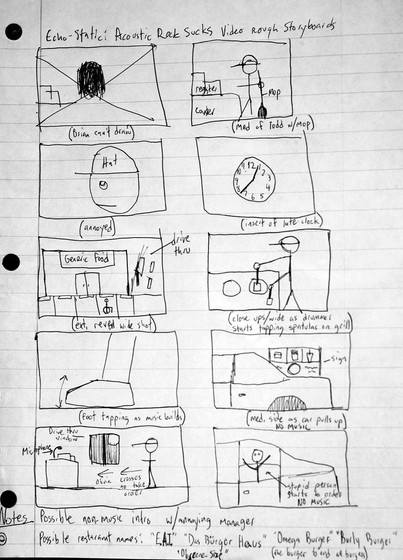 Echo-Static: Acoustic Rock Sucks Video Rough Storyboards
(Brian can't draw)
register
counter
Mop
(Med of Todd w/mop)
Hat
(annoyed)
12
(insert of late clock)
Generic Food
drive thru
(ext. reveal wide shot)
(close ups/wide as drummer
starts tapping spatulas on grill)
(foot tapping as music builds)
sign
(med. side as car pulls up)
NO MUSIC
Drive thru
window
Microphone
crosses
to take
order
stupid person
starts to order
NO MUSIC
Notes Possible non-music intro w/annoying manager
Possible restaurant names: "EAT" "Das Bürger Haus" "Omega Burger" "Burly Burger"
(the burger to end all burgers)
"Obscene-Size"